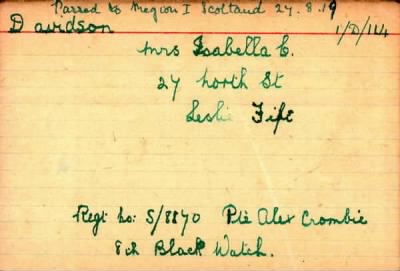 Passed to Region I Scotland 27.8.19
Davidson 1/D/114
Mrs Isabella C.
27 North St
Leslie Fife
Regt no: S/8870 Pte Alex Crombie
8th Black Watch.